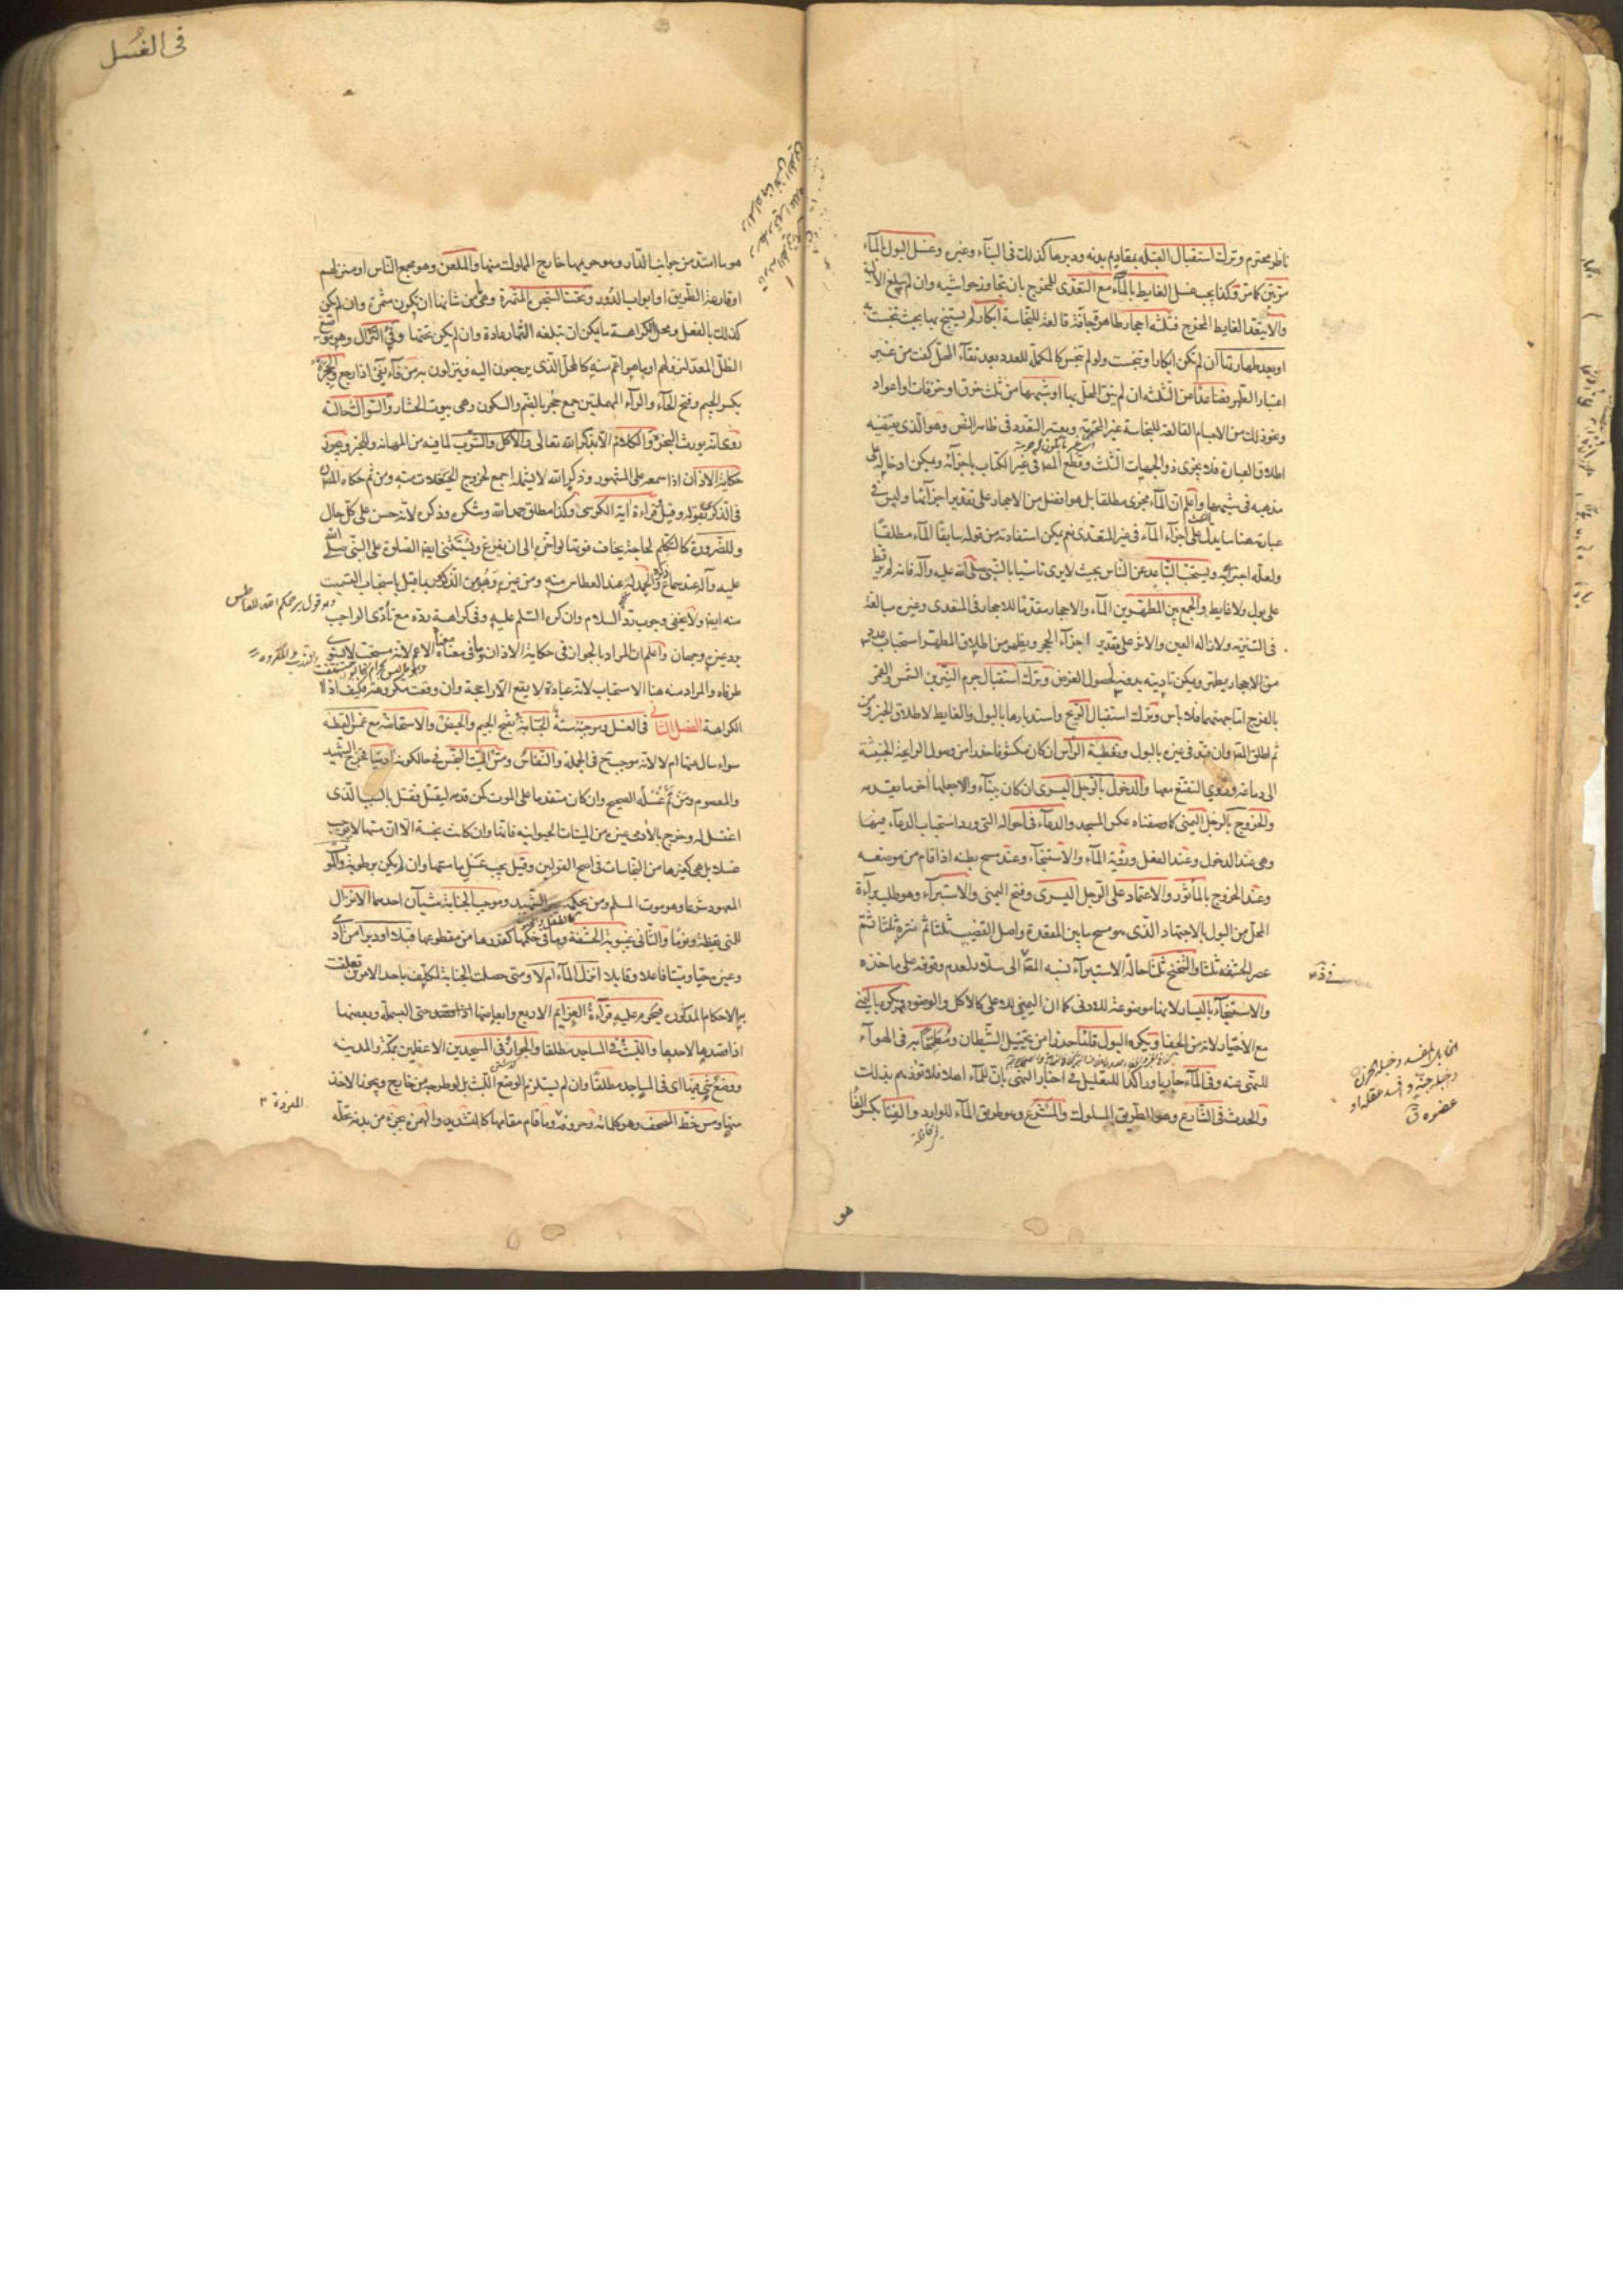 ناظر محترم وترك استقبال القبلة بمقاديم بدنه ودبرها كذلك فى البناء وغيره وغسل البول بالماء
مرتين كما مر وكذا يجب غسل الغايط بالماء مع التعدى للمخرج بان تجاوز حواشيه وان لم يبلغ الالية
والا يتعد الغايط المخرج فثلثه احجار طاهرة جافة قالعة للنجاسة ابكار لم يستنج بها بحيث تنجست به
او بعد طهارتها ان لم تكن ابكارا وتنجست ولو لم تنجس كالمكملة للعدد بعد نقاء المحل كفت من غير
اعتبار الطهر فصاعدا عن الثلثة ان لم ينق المحل بها او شبهها من ثلث خرق او خزفات او اعواد
ونحو ذلك من الاجسام القالعة للنجاسة غير المحترمة ويعتبر العدد فى ظاهر النص وهو الذى يقتضيه
اطلاق العبارة فلا يجزى ذو الجهات الثلث وقطع المص فى غير الكتاب باجزائه ويمكن ادخاله على
مذهبه فى شبهها واعلم ان الماء مجزى مطلقا بل هو افضل من الاحجار على تقدير اجزائها وليس فى
عبارته هنا ما يدل على اجزاء الماء فى غير المتعدى نعم يمكن استفادته من قوله سابقا الماء مطلقا
ولعله اجتزء به ويستحب التباعد عن الناس بحيث لا يرى تاسيا بالنبى صلى الله عليه وآله فانه لم ير قط
على بول ولا غايط والجمع بين المطهرين الماء والاحجار مقدما للاحجار فى المتعدى وغيره مبالغة
فى التنزيه ولازالة العين والاثر على تقدير اجزاء الحجر ويظهر من اطلاق المطهر استحباب عدد
من الاحجار يطهر ويمكن تاديته بدونه لحصول الغرض وترك استقبال جرم النيرين الشمس والقمر
بالفرج اما جهتهما فلا باس وترك استقبال الريح واستدبارها بالبول والغايط لاطلاق الخبر ومن
ثم اطلق المص وان قيد فى غيره بالبول وتغطية الراس ان كان مكشوفا حذرا من وصول الرايحة الخبيثة
الى دماغه وروى التقنع معها والدخول بالرجل اليسرى ان كان ببناء والا جعلها آخر ما يقدمه
والخروج بالرجل اليمنى كما وصفناه عكس المسجد والدعاء فى احواله التى ورد استحباب الدعاء فيها
وهى عند الدخول وعند الفعل ورؤية الماء والاستنجاء وعند مسح بطنه اذا قام من موضعه
وعند الخروج بالماثور والاعتماد على الرجل اليسرى وفتح اليمنى والاستبراء وهو طلب براءة
المحل من البول بالاجتهاد الذى هو مسح ما بين المقعدة واصل القضيب ثلثا ثم نتره ثلثا ثم
عصر الحشفة ثلثا والتنحنح ثلثا حالة الاستبراء نسبه المص الى سلار لعدم وقوفه على ماخذه
والاستنجاء باليسار لانها موضوعة للادنى كما ان اليمنى للاعلى كالاكل والوضوء ويكره باليمنى
مع الاختيار لانه من الجفا ويكره البول قائما حذرا من تخبيل الشيطان ومطمحا به فى الهواء
للنهى عنه وفى الماء جاريا وراكدا للتعليل فى اخبار النهى بان للماء اهلا فلا تؤذيهم بذلك
والحدث فى الشارع وهو الطريق المسلوك والمشرع وهو طريق الماء للواردة والفناء بكسر الفاء
الخابل المفسد وخبله الحزن
وخبله جننه وافسد عقله او
عضوه ق
هو
فى الغُسل
هو ما امتد من جوانب الدار وهو حريمها خارج المملوك منها والملعن وهو مجمع الناس او منزلهم
او قارعة الطريق او ابواب الدور وتحت الشجرة المثمرة وهى ما من شانها ان تكون مثمرة وان لم يكن
كذلك بالفعل ومحل الكراهة ما يمكن ان تبلغه الثمار عادة وان لم يكن تحتها وفىء النزال وهو موضع
الظل المعد لنزولهم او ما هو اعم منه كالمحل الذى يرجعون اليه وينزلون به من فاء يفىء اذا رجع والجحرة
بكسر الجيم وفتح الحاء والراء المهملتين جمع جحر بالضم والسكون وهى بيوت الحشار والسواك حالته
روى انه يورث البخر والكلام الا بذكر الله تعالى والاكل والشرب لما فيه من المهانة وللخبر ويجوز
حكاية الاذان اذا سمعه على المشهور وذكر الله لا يشمله اجمع لخروج الحيعلات منه ومن ثم حكاه المص
فى الذكرى بقوله وقيل وقراءة آية الكرسى وكذا مطلق حمد الله وشكره وذكره لانه حسن على كل حال
وللضرورة كالتكلم لحاجة يخاف فوتها لو اخره الى ان يفرغ ويستثنى ايضا الصلوة على النبى صلى الله
عليه وآله عند سماع ذكره والحمدلة عند العطاس منه ومن غيره وهو من الذكر وربما قيل باستحباب التسميت
منه ايضا ولا يخفى وجوب رد السلام وان كره السلم عليه وفى كراهة رده مع تأدى الواجب
برد غيره وجهان واعلم ان المراد بالجواز فى حكاية الاذان وما فى معناه معناه الاعم لانه مستحب لا يستوى
طرفاه والمراد منه هنا الاستحباب لانه عبادة لا يقع الا راجحة وان وقعت مكروهة فكيف اذا لا
الكراهة الفصل الثانى فى الغسل وموجبه ستة الجنابة بفتح الجيم والحيض والاستحاضة مع غمس القطنة
سواء سال عنها ام لا لانه موجب ح فى الجملة والنفاس ومس الميت النجس فى حال كونه آدميا فخرج الشهيد
والمعصوم ومن تم غسله الصحيح وان كان متقدما على الموت كمن قدمه ليقتل فقتل بالسبب الذى
اغتسل له وخرج بالآدمى غيره من الميتات الحيوانية فانها وان كانت نجسة الا ان مسها لا يوجب
غسلا بل هى كغيرها من النجاسات فى اصح القولين وقيل يجب غسل ما مسها وان لم يكن برطوبة والموت
المعهود شرعا وهو موت المسلم ومن بحكمه غير الشهيد وموجب الجنابة شيآن احدهما الانزال
للمنى يقظة ونوما والثانى غيبوبة الحشفة وما فى حكمها كقدرها من مقطوعها قبلا او دبرا من آدمى
وغيره حيا وميتا فاعلا وقابلا انزل الماء ام لا ومتى حصلت الجنابة لمكلف باحد الامرين تعلقت
به الاحكام المذكورة فيحرم عليه قراءة العزايم الاربع وابعاضها حتى البسملة وبعضها
اذا قصدها لاحدها واللبث فى المساجد مطلقا والجواز فى المسجدين الاعظمين بمكة والمدينة
ووضع شىء فيها اى فى المساجد مطلقا وان لم يستلزم الوضع اللبث بل لو طرحه من خارج ويجوز الاخذ
منها ومس خط المصحف وهو كلماته وحروفه وما قام مقامها كالتشديد والهمزة بجزء من بدنه تحله
وهو قول يرحمكم الله للعاطس